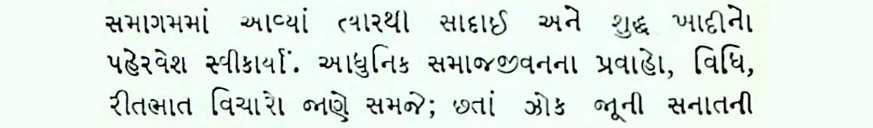 સમાગમમાં આવ્યાં ત્યારથી સાદાઈ અને શુદ્ધ ખાદીનો
પહેરવેશ સ્વીકાર્યો. આધુનિક સમાજજીવનના પ્રવાહો, વિધિ,
રીતભાત વિચારો જાણે સમજે; છતાં ઝોક જૂની સનાતની